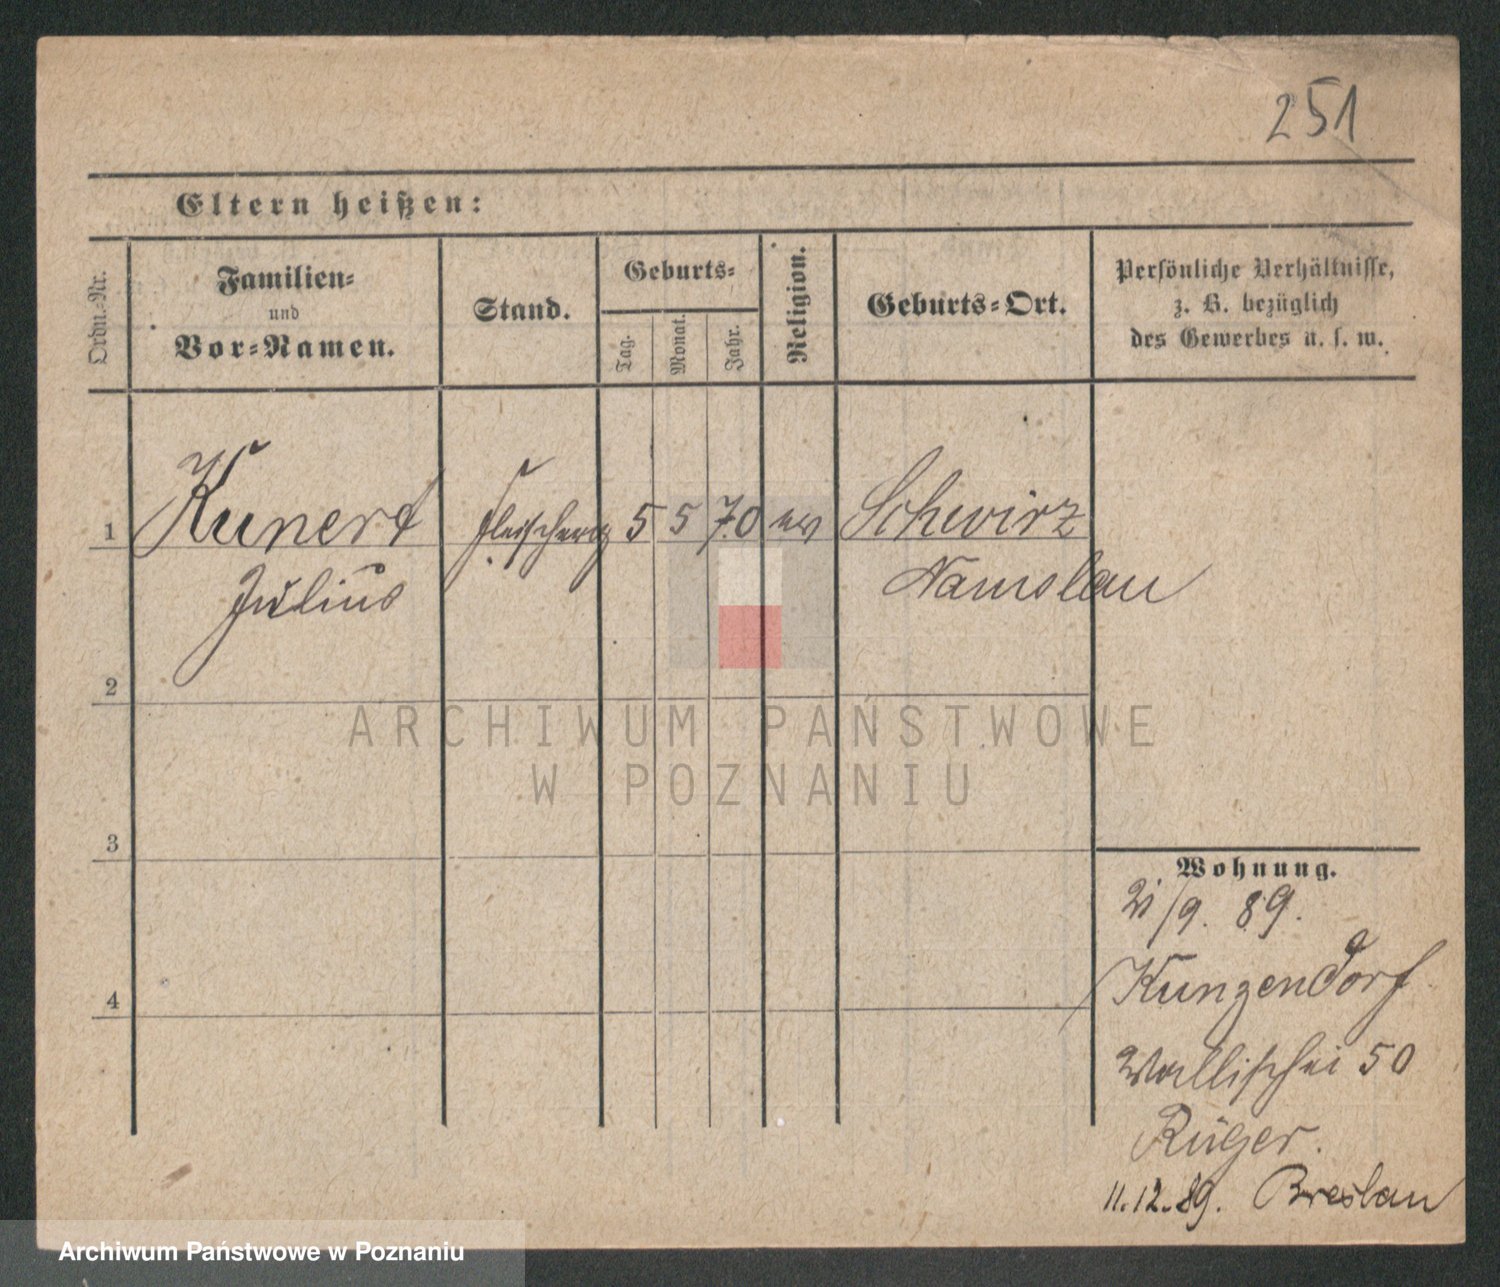 251
Eltern heißen:
Ordn.-Nr.
Familien-
und
Vor-Namen.
Stand.
Geburts-
Tag.
Monat.
Jahr.
Religion.
Geburts-Ort.
Persönliche Verhältnisse,
z. B. bezüglich
des Gewerbes u. s. w.
1 Kunert 5 5 70 ev Schwirz
Julius Namslau
2
3
4
ARCHIWUM PAŃSTWOWE
W POZNANIU
Wohnung.
/9. 89.
Kunzendorf
Wallischei 50
Rüger.
11.12.89. Breslau
Archiwum Państwowe w Poznaniu